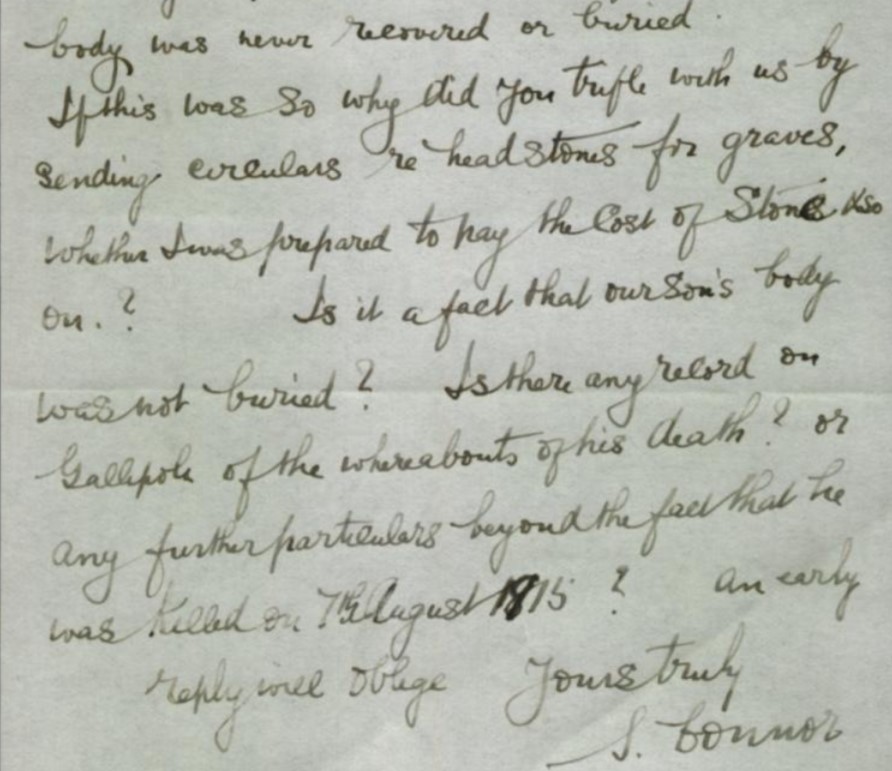 body was never recovered or buried.
If this was so why did you trifle with us by
sending circulars re headstones for graves,
whether I was prepared to pay the cost of stone & so
on.? Is it a fact that our son's body
was not buried? Is there any record on
Gallipoli of the whereabouts of his death? or
any further particulars beyond the fact that he
was killed on 7th August 1915? an early
reply will oblige Yours truly
S. Connor